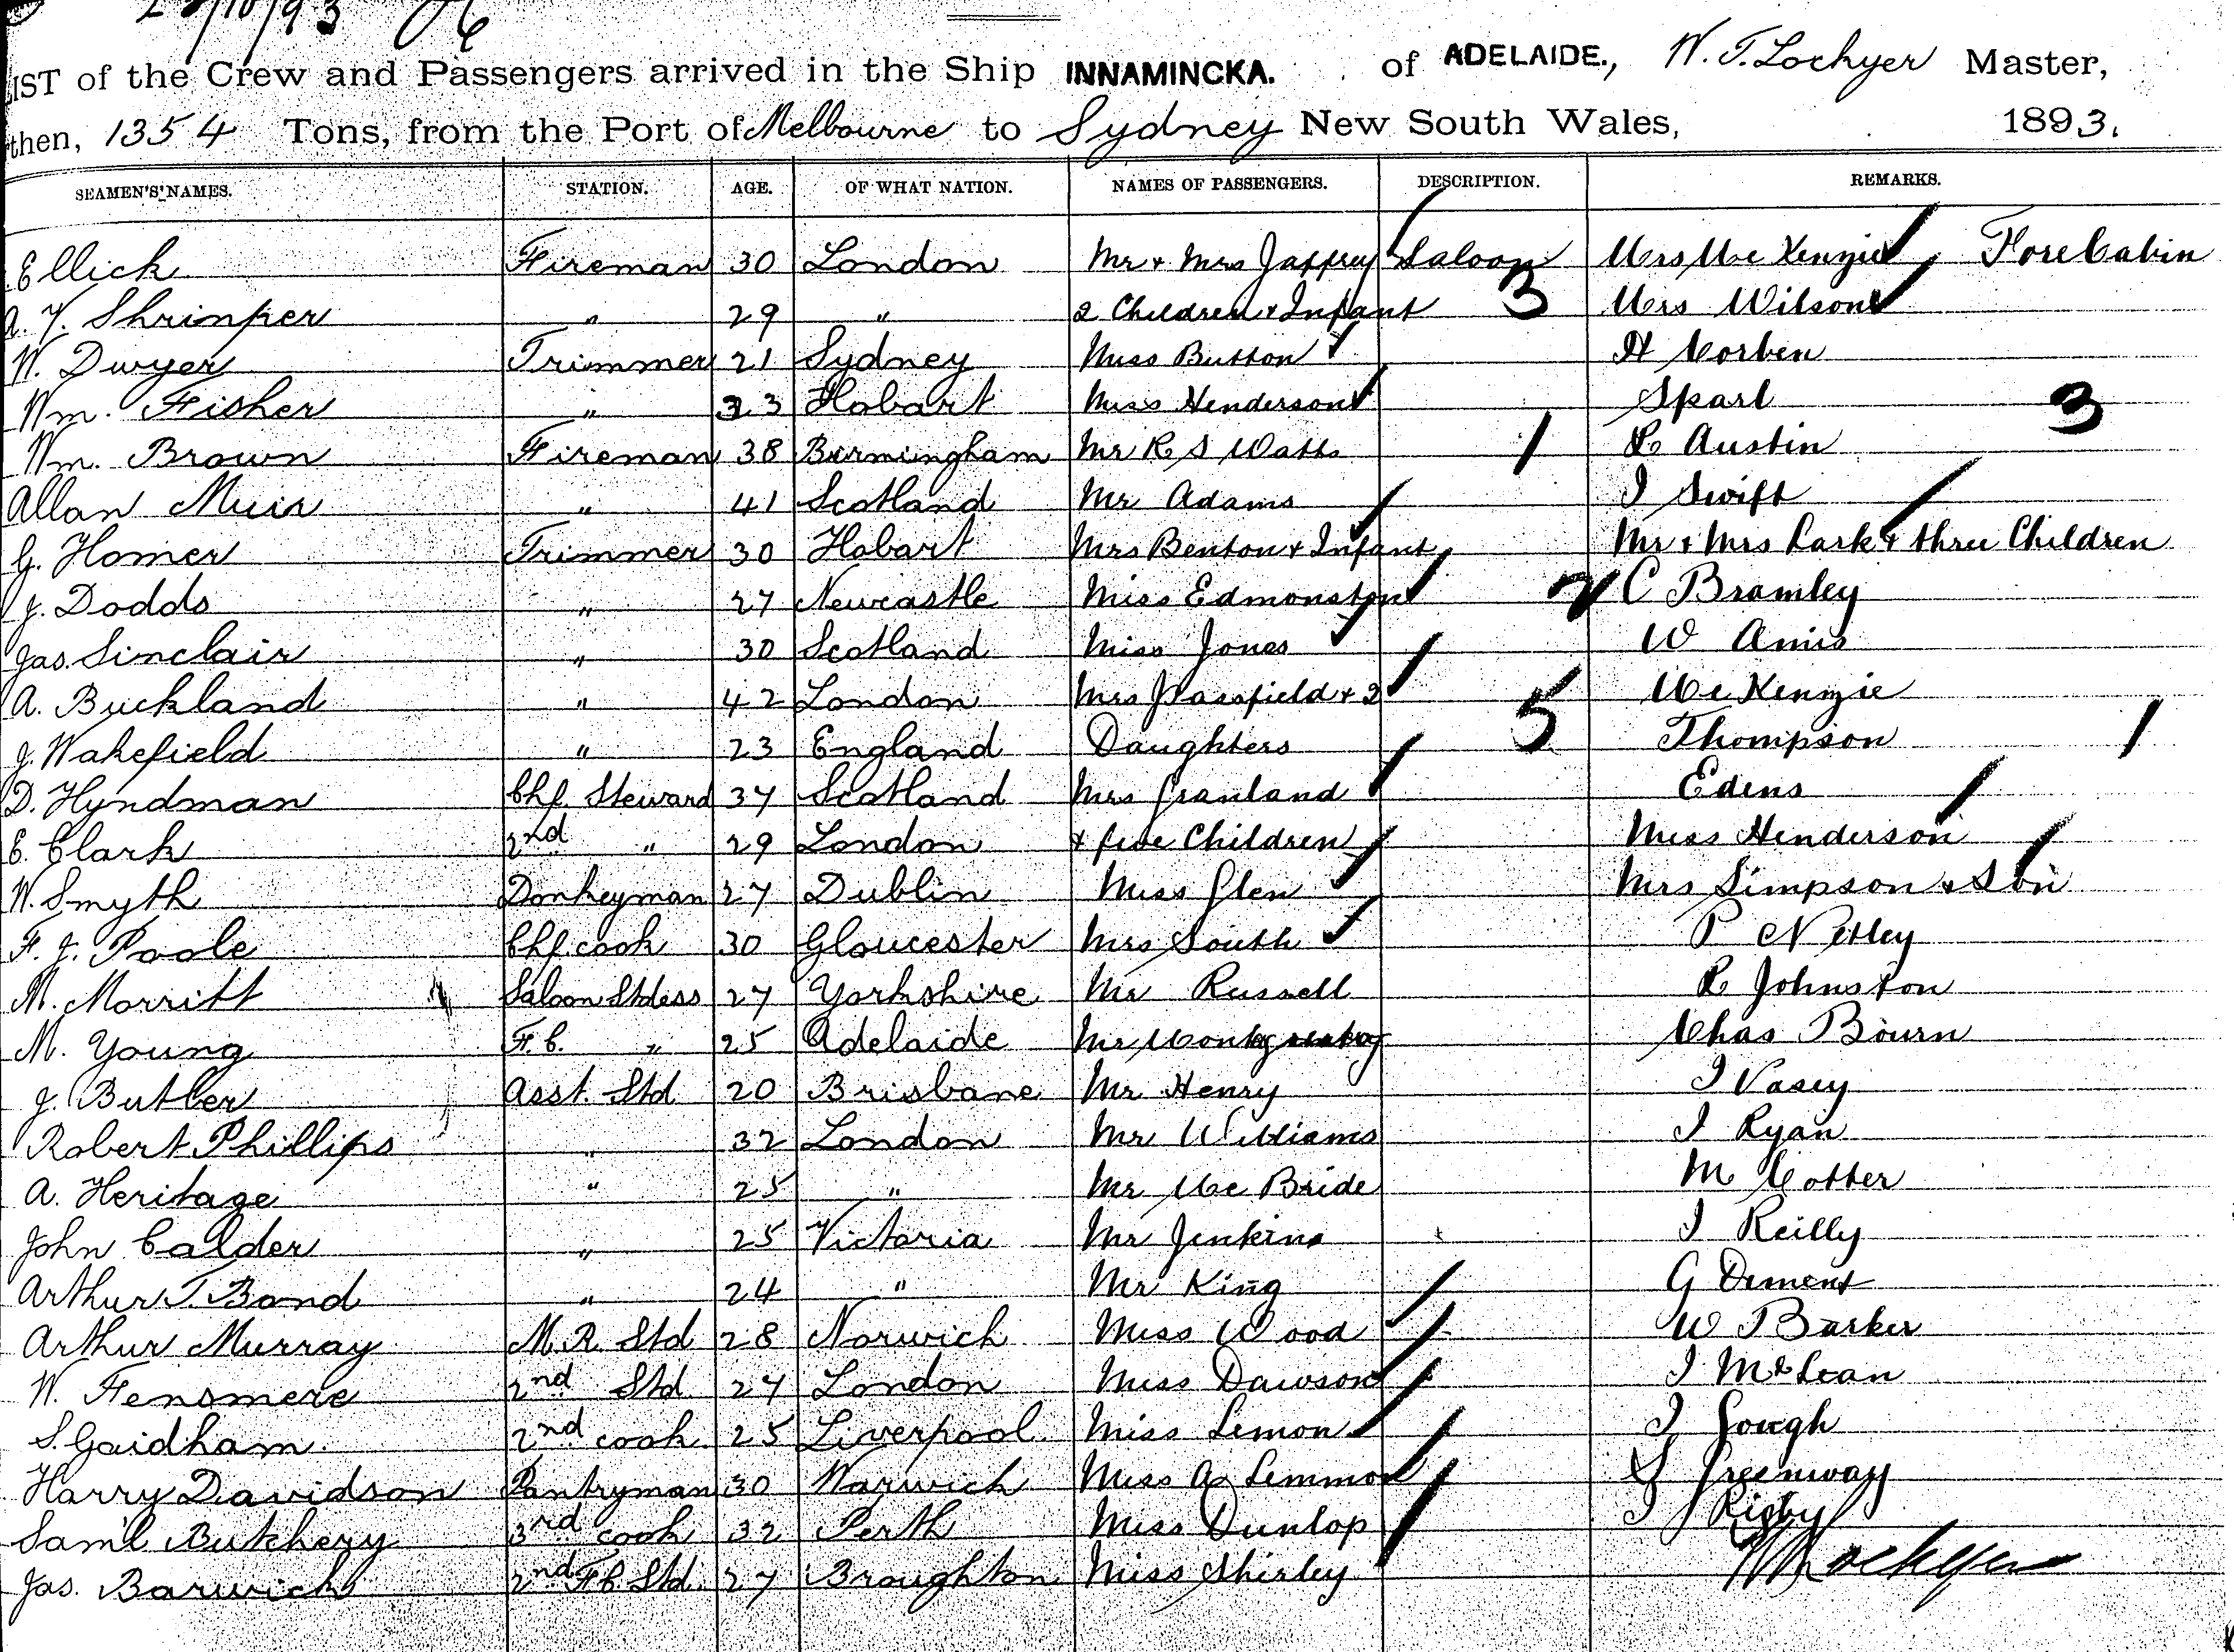 28/10/93
LIST of the Crew and Passengers arrived in the Ship INNAMINCKA. of ADELAIDE., W. T. Lockyer Master,
then, 1354 Tons, from the Port of Melbourne to Sydney New South Wales, 1893.
SEAMEN'S NAMES. STATION. AGE. OF WHAT NATION. NAMES OF PASSENGERS. DESCRIPTION. REMARKS.
Ellick Fireman 30 London Mr & Mrs Jaffrey Saloon Mrs McKenzie Fore Cabin
A. Y. Shrimper " 29 " 2 Children & Infant 3 Mrs Wilson
W. Dwyer Trimmer 21 Sydney Miss Button H Corben
Wm. Fisher " 33 Hobart Miss Henderson Sparl 3
Wm. Brown Fireman 38 Birmingham Mr R S Watts 1 R Austin
Allan Muir " 41 Scotland Mr Adams J Swift
G. Homer Trimmer 30 Hobart Mrs Benton & Infant Mr & Mrs Lark & three Children
J. Dodds " 27 Newcastle Miss Edmonston 2 C Bramley
Jas. Sinclair " 30 Scotland Miss Jones W Amis
A. Buckland " 42 London Mrs Passfield & 2 McKenzie
J. Wakefield " 23 England Daughters 5 Thompson 1
D. Hyndman Chf. Steward 37 Scotland Mrs Granland Edens
E. Clark 2nd " 29 London & five Children Miss Henderson
W. Smyth Donkeyman 27 Dublin Miss Glen Mrs Simpson & Son
F. J. Poole Chf. cook 30 Gloucester Mrs South P Netley
M. Morritt Saloon Stdess 27 Yorkshire Mr Russell R Johnston
M. Young F. C. " 25 Adelaide Mr Chas Bourn
J. Butler Asst. Std 20 Brisbane Mr Henry J Vasey
Robert Phillips " 32 London Mr Williams J Ryan
A. Heritage " 25 " Mr McBride M Cotter
John Calder " 25 Victoria Mr Jenkins J Reilly
Arthur T. Bond " 24 " Mr King G Dement
Arthur Murray M. R. Std 28 Norwich Miss Wood W Barker
W. Fensmere 2nd Std 27 London Miss Dawson J McLean
S. Gaidham. 2nd cook 25 Liverpool Miss Lemon J Gough
Harry Davidson Pantryman 30 Warwick Miss A Lemmon Greenway
Saml Butchery 3rd cook 32 Perth Miss Dunlop J Rigby
Jas. Barwick 2nd F.C. Std. 27 Broughton Miss Shirley W Lockyer